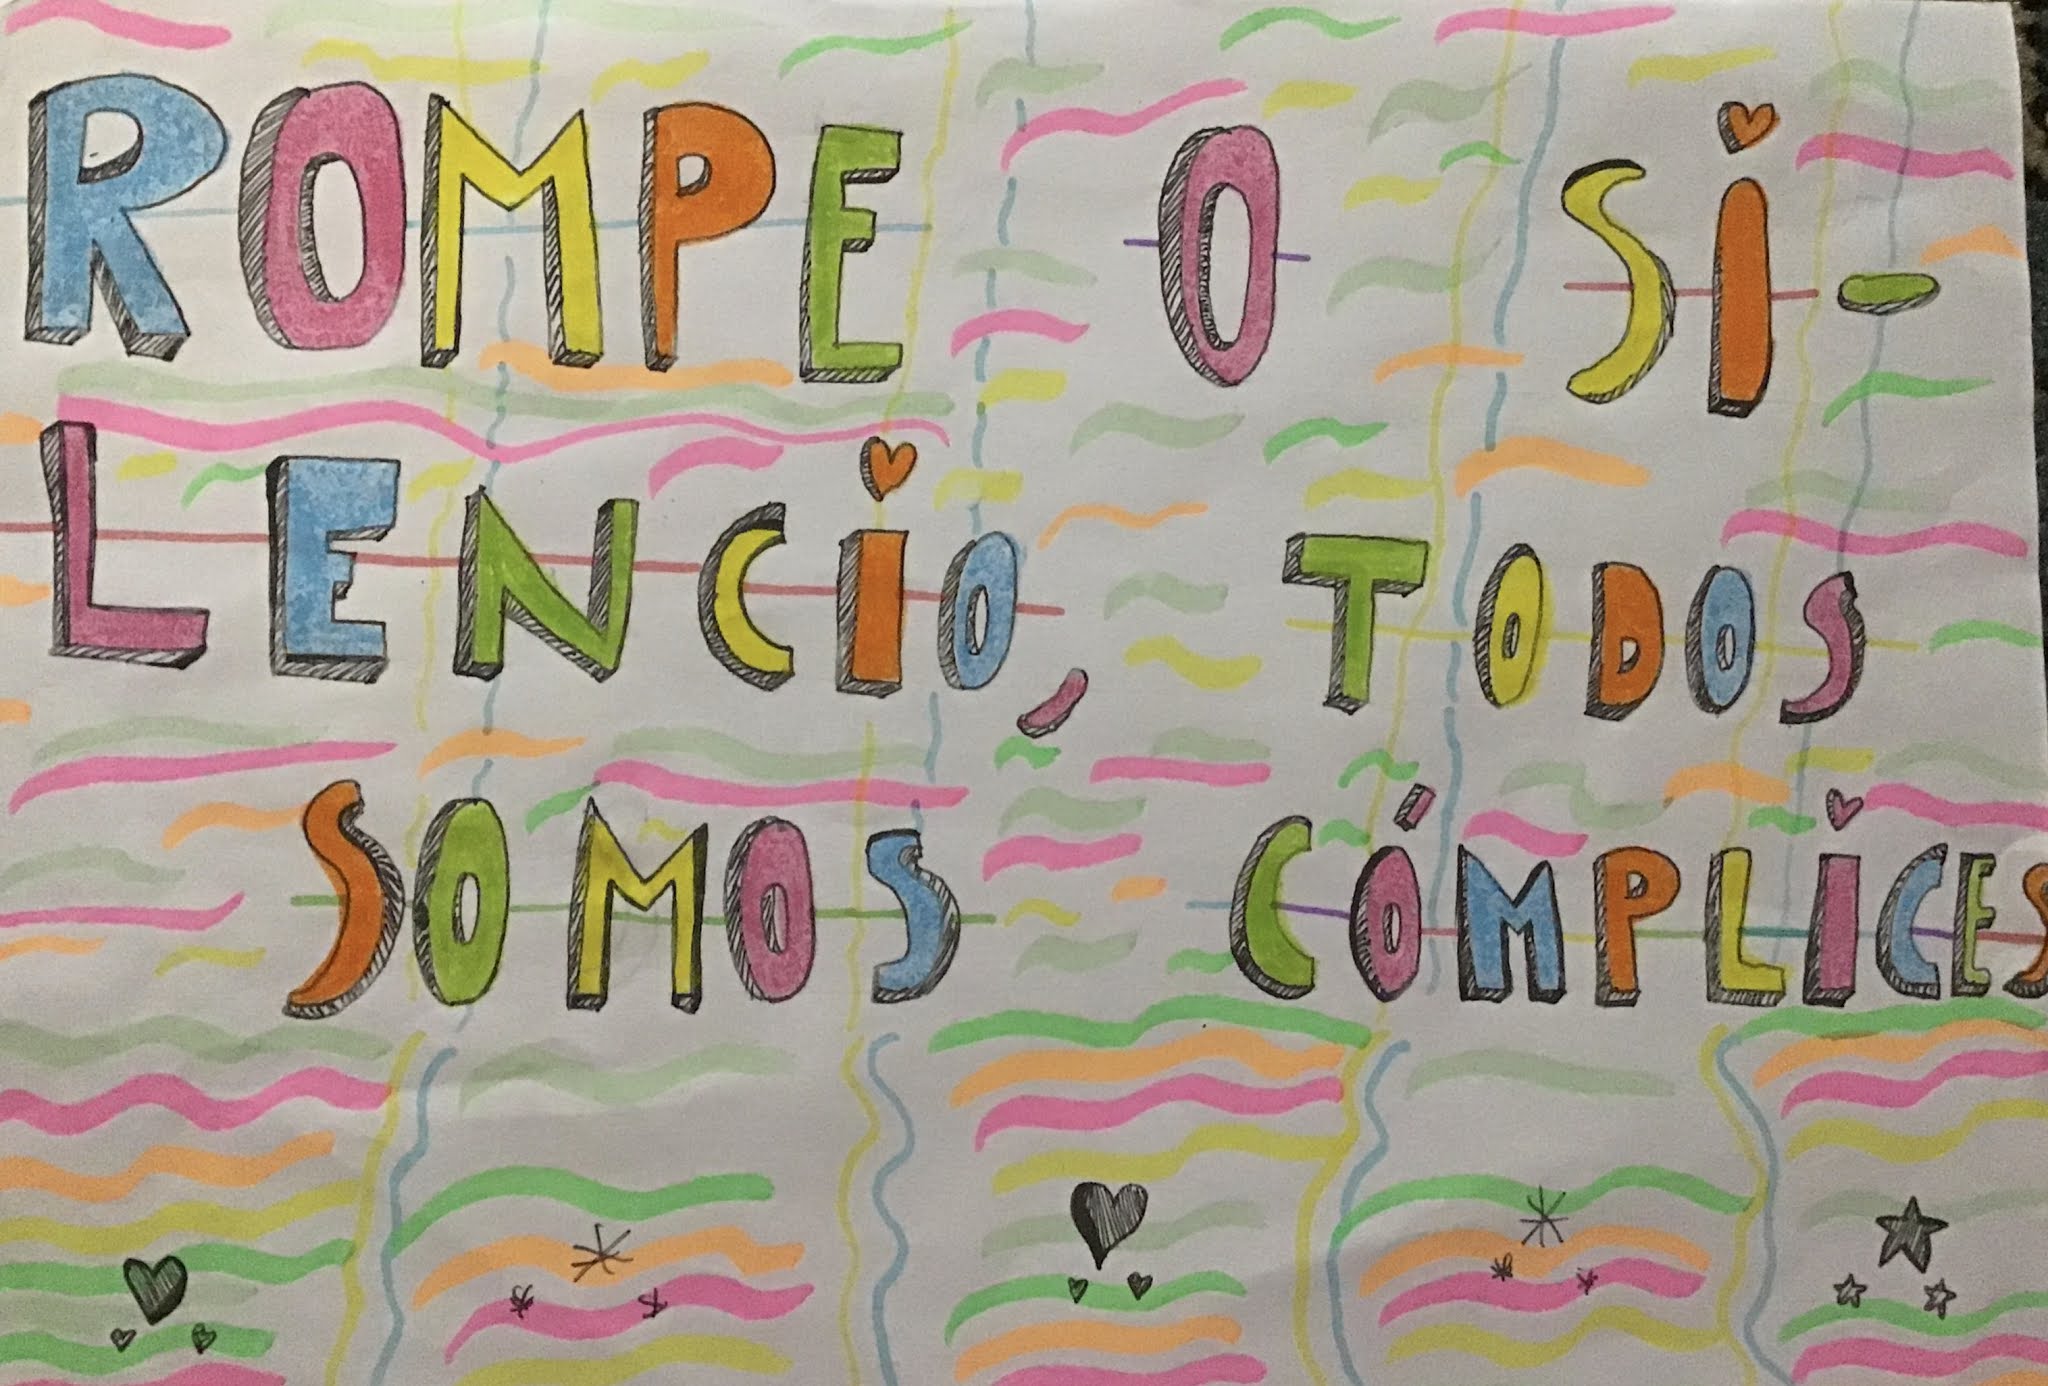 ROMPE O Si-
LENCiO, TODOS
SOMOS CÓMPLiCES